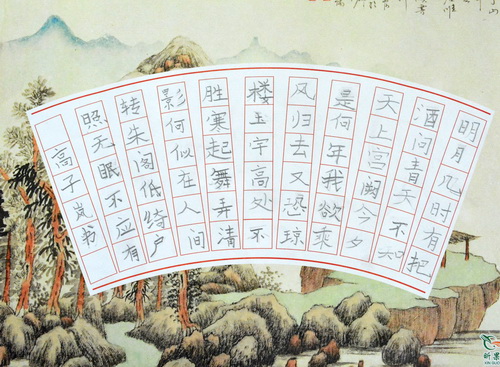 明月几时有把
酒问青天不知
天上宫阙今夕
是何年我欲乘
风归去又恐琼
楼玉宇高处不
胜寒起舞弄清
影何似在人间
转朱阁低绮户
照无眠不应有
高子岚书